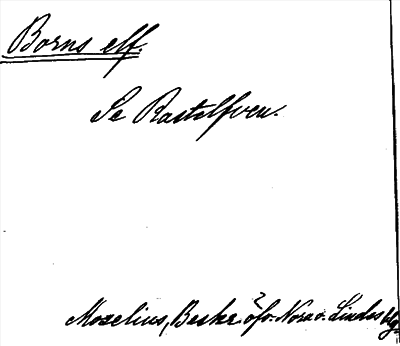 Borns elf.
Se Rastelfven.
Moselius, Beskr. öfv. Nora o. Lindes bg.